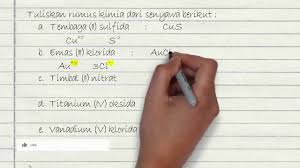 Tuliskan rumus kimia dari senyawa berikut :
a. Tembaga (II) sulfida : CuS
Cu+2 S-2
b. Emas (III) klorida : AuC
Au+3 3Cl-1
c. Timbal (II) nitrat
d. Titanium (IV) oksida
e. Vanadium (V) klorida